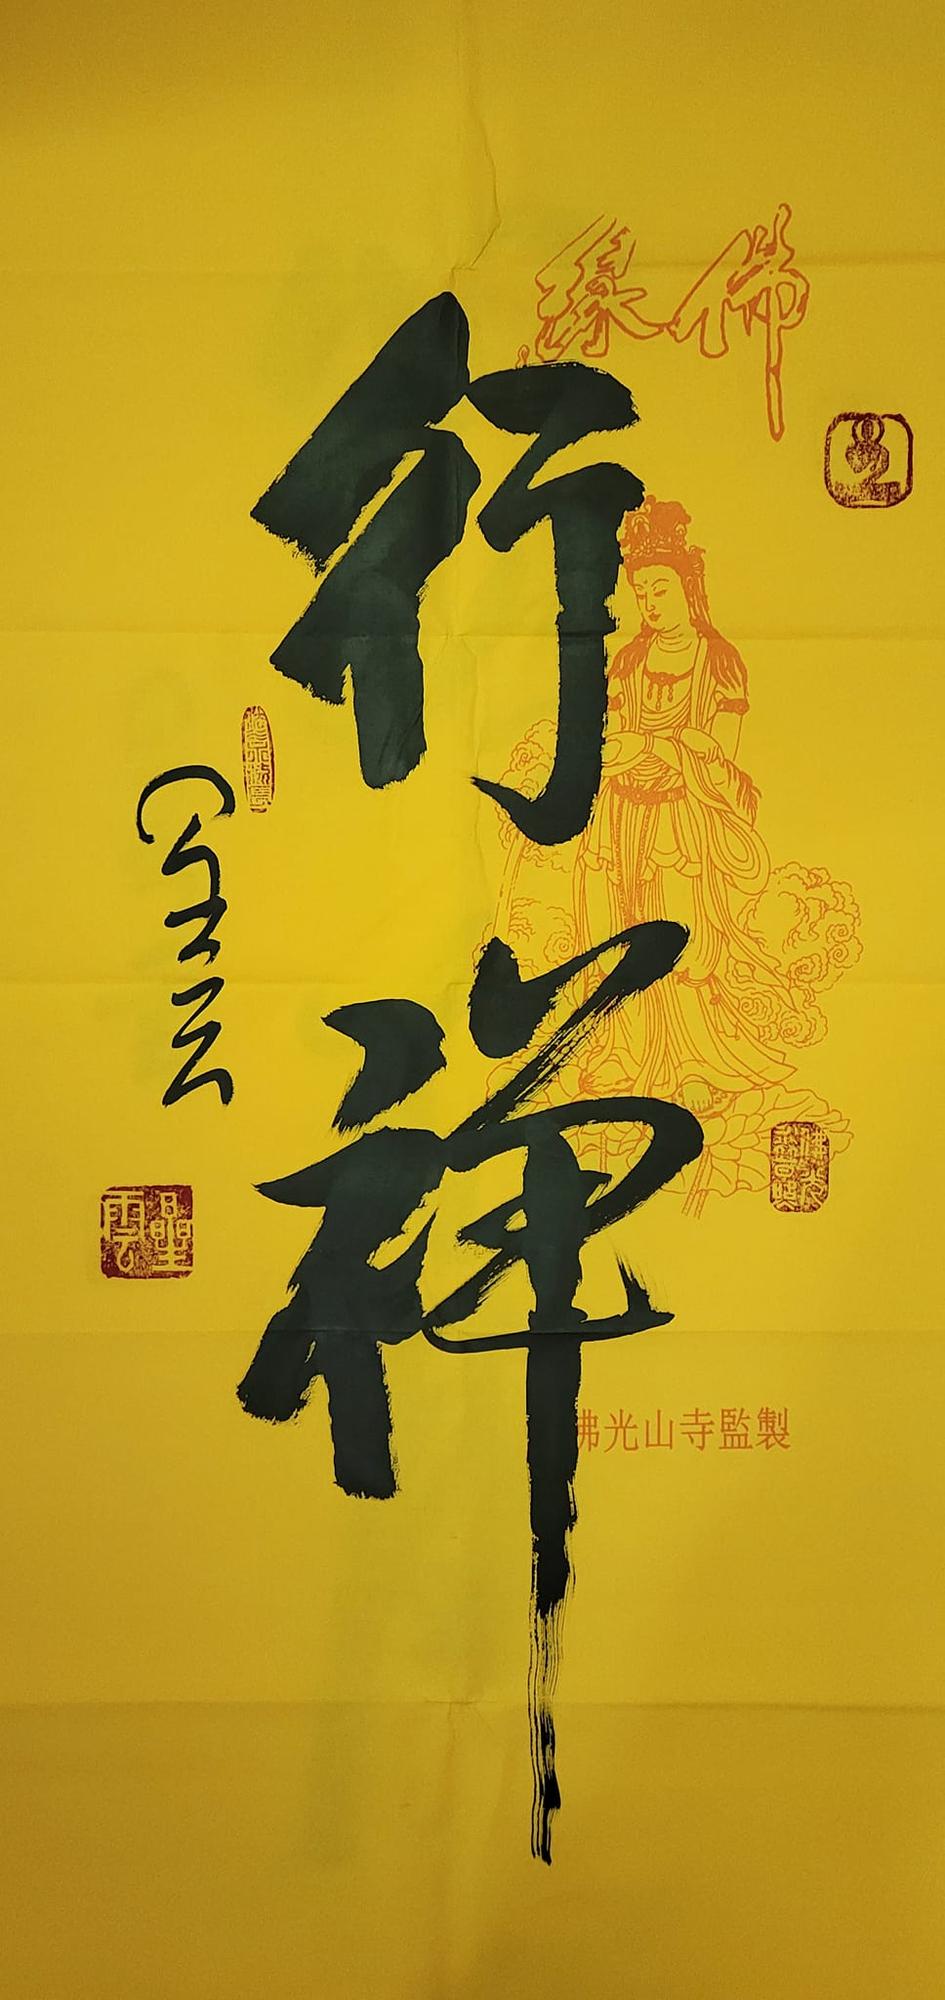 佛緣
行禪
星云
星雲
佛光山寺監製